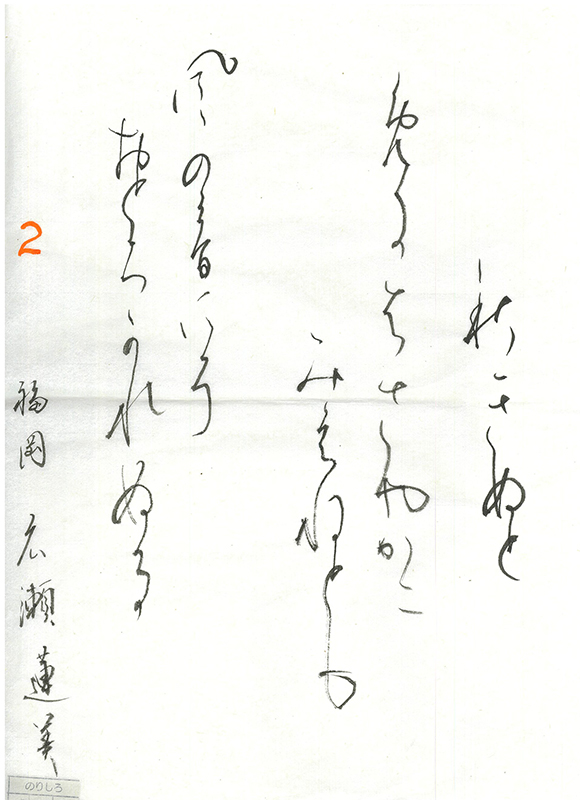 秋きぬと
免にはさやかに
みえねども
風の音にぞ
おどろかれぬる
福岡 広瀬蓮美
2
のりしろ